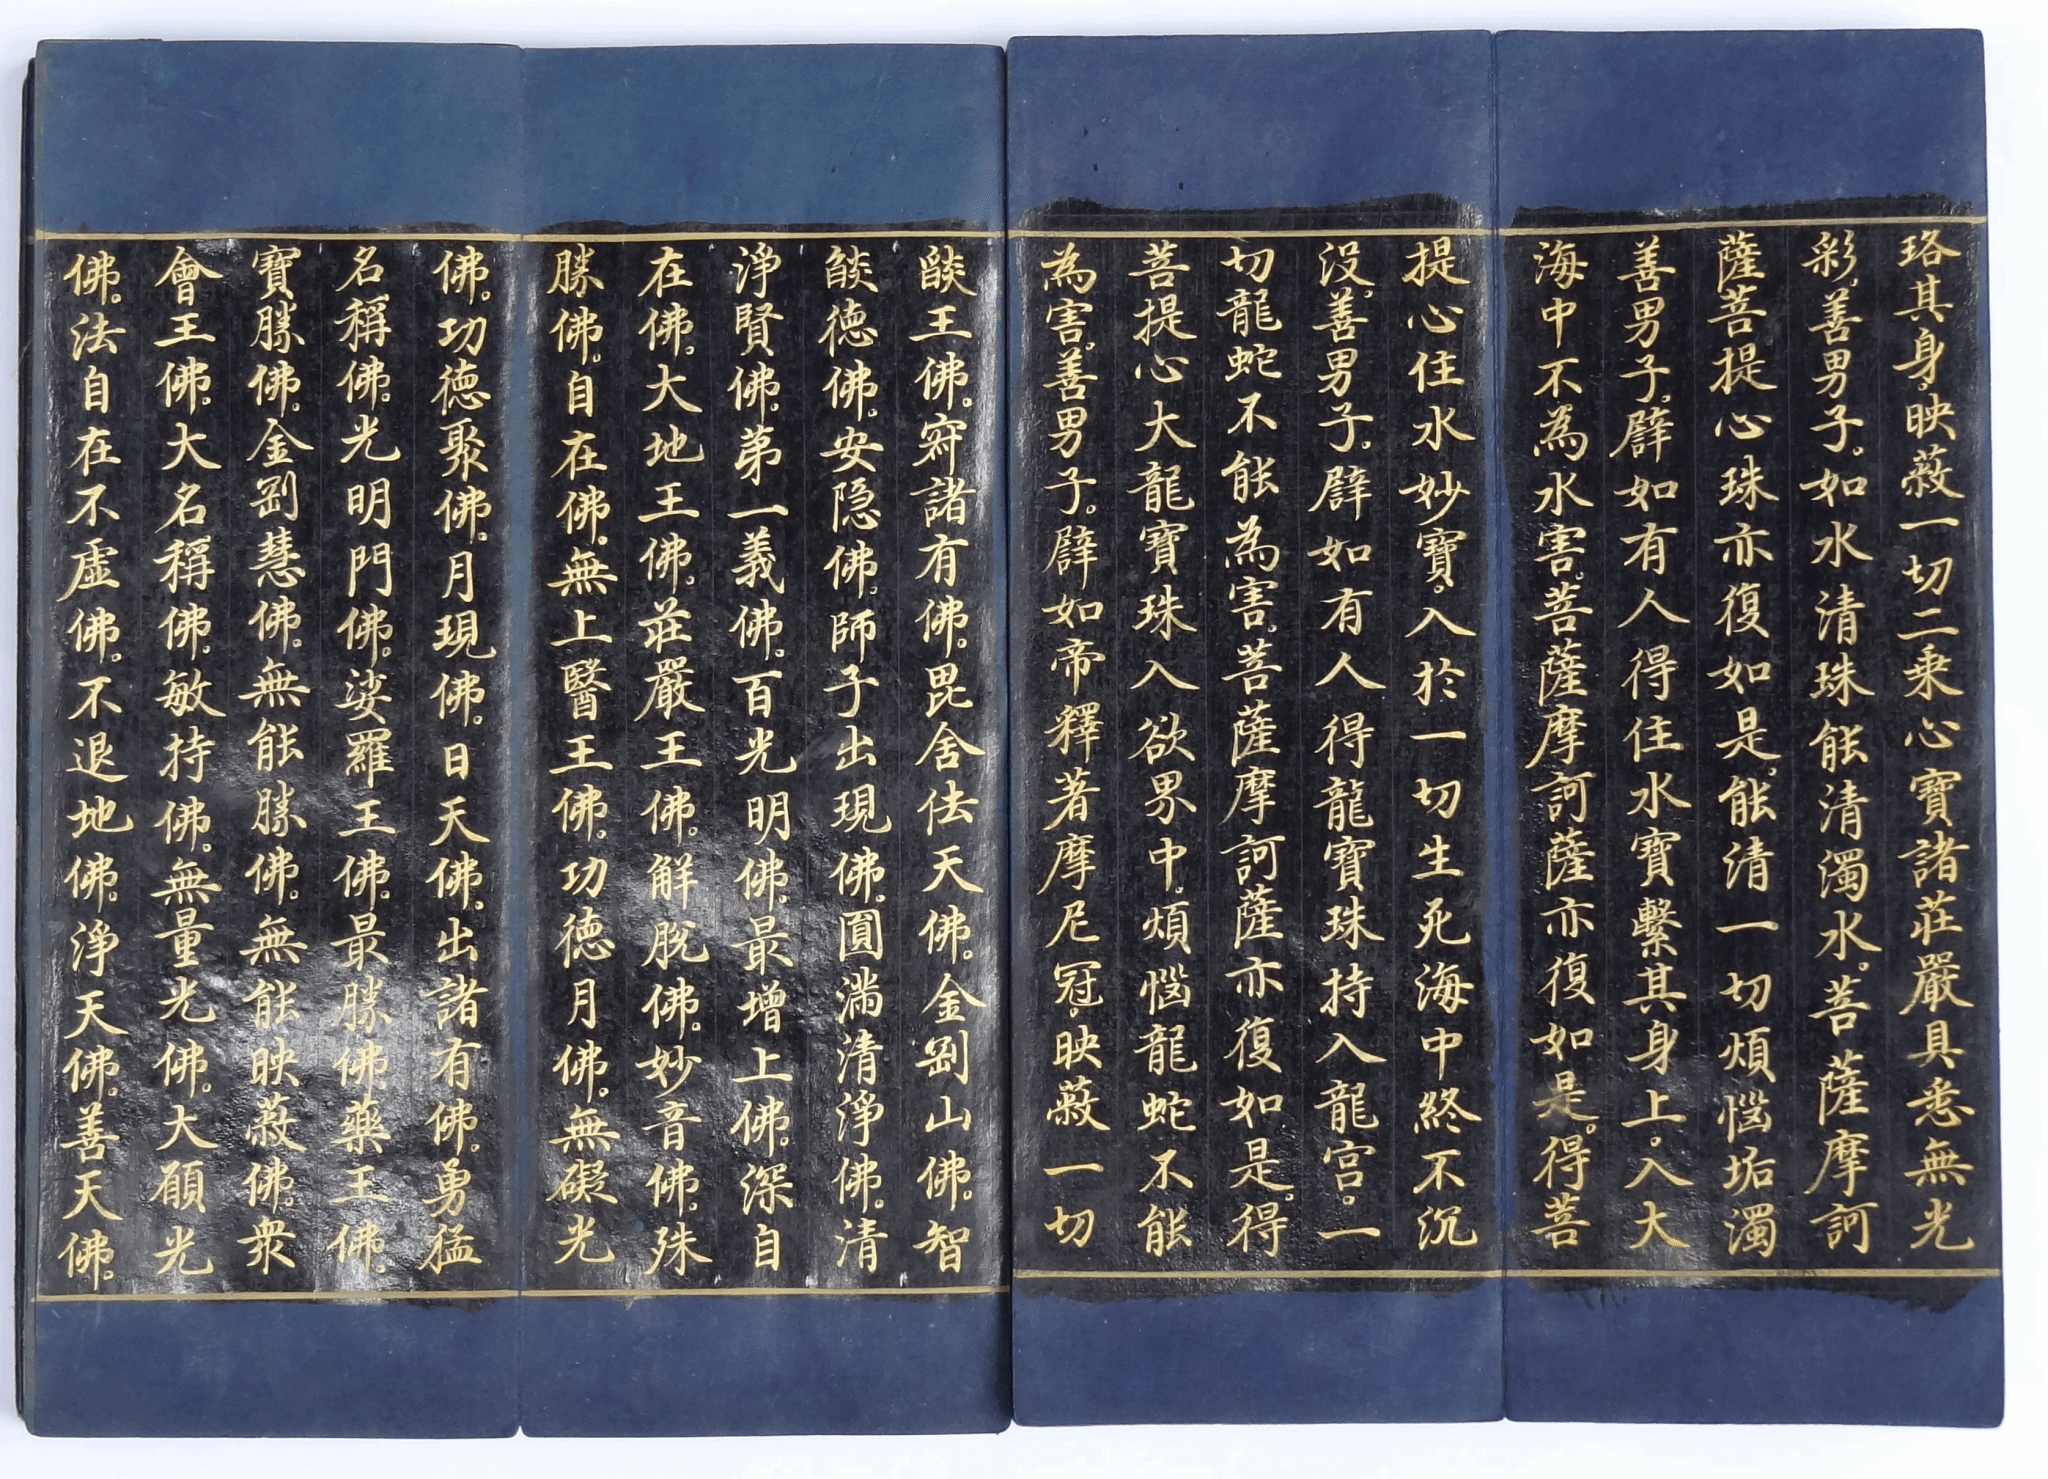 珞其身。映蔽一切二乗心寶諸莊嚴具悉無光
彩。善男子。如水清珠能清濁水。菩薩摩訶
薩菩提心珠亦復如是。能清一切煩惱垢濁
善男子。譬如有人得住水寶繫其身上。入大
海中不為水害。菩薩摩訶薩亦復如是。得菩
提心住水妙寶。入於一切生死海中終不沉
没。善男子。譬如有人得龍寶珠持入龍宮。一
切龍蛇不能為害。菩薩摩訶薩亦復如是。得
菩提心大龍寶珠入欲界中。煩惱龍蛇不能
為害。善男子。譬如帝釋著摩尼冠。映蔽一切
燄王佛。竒諸有佛。毘舍佉天佛。金剛山佛。智
燄德佛。安隐佛。師子出現佛。圓滿清淨佛。清
淨賢佛。第一義佛。百光明佛。最增上佛。深自
在佛。大地王佛。莊嚴王佛。解脫佛。妙音佛。殊
勝佛。自在佛。無上醫王佛。功德月佛。無礙光
佛。功德聚佛。月現佛。日天佛。出諸有佛。勇猛
名稱佛。光明門佛。娑羅王佛。最勝佛。藥王佛。
寶勝佛。金剛慧佛。無能勝佛。無能映蔽佛。衆
會王佛。大名稱佛。敏持佛。無量光佛。大願光
佛。法自在不虛佛。不退地佛。淨天佛。善天佛。